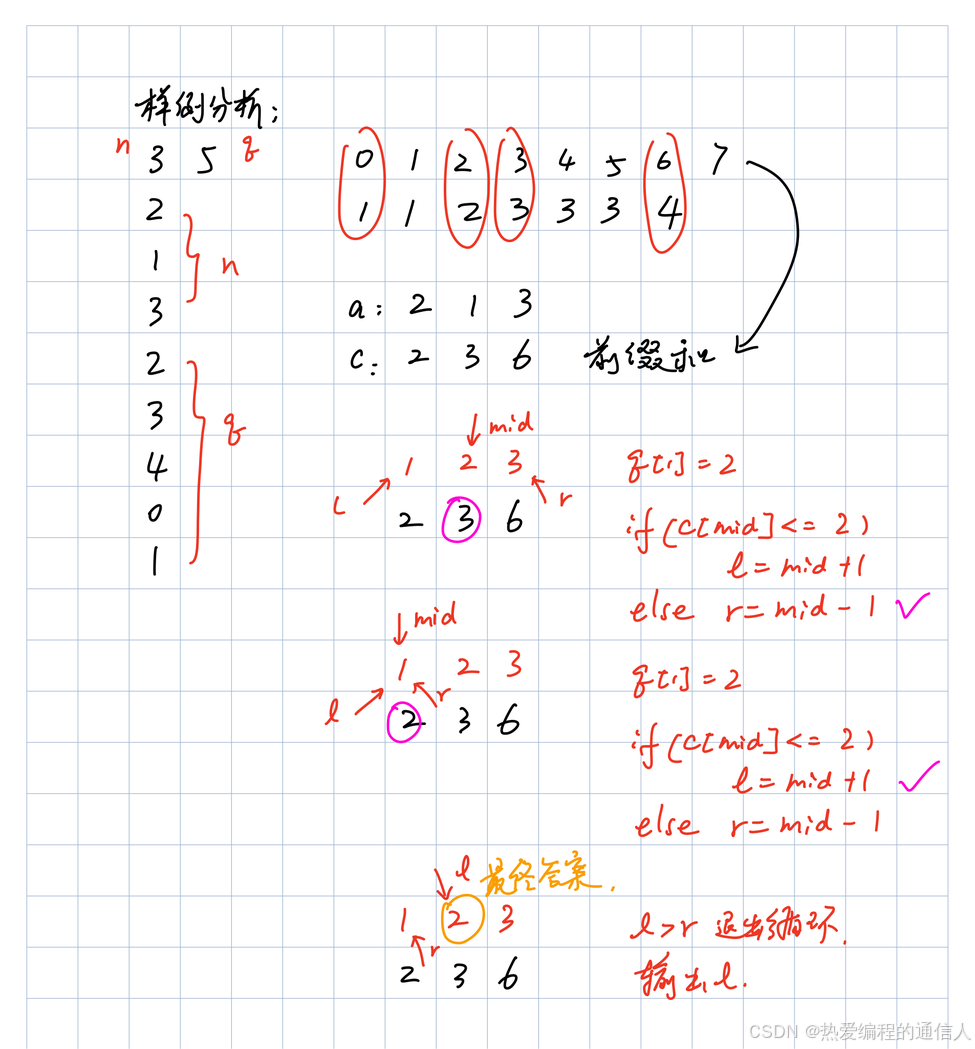 样例分析：
n 3 5 q
2
1
3
n
2
3
4
0
1
q
0 1 2 3 4 5 6 7
1 1 2 3 3 3 4
a: 2 1 3
c: 2 3 6 前缀和
mid
1 2 3
l r
2 3 6
q[1] = 2
if (c[mid] <= 2)
l = mid + 1
else r = mid - 1 ✓
mid
1 2 3
l r
2 3 6
q[1] = 2
if (c[mid] <= 2)
l = mid + 1 ✓
else r = mid - 1
l 最终答案.
1 2 3
r
2 3 6
l > r 退出循环.
输出 l.
CSDN @热爱编程的通信人